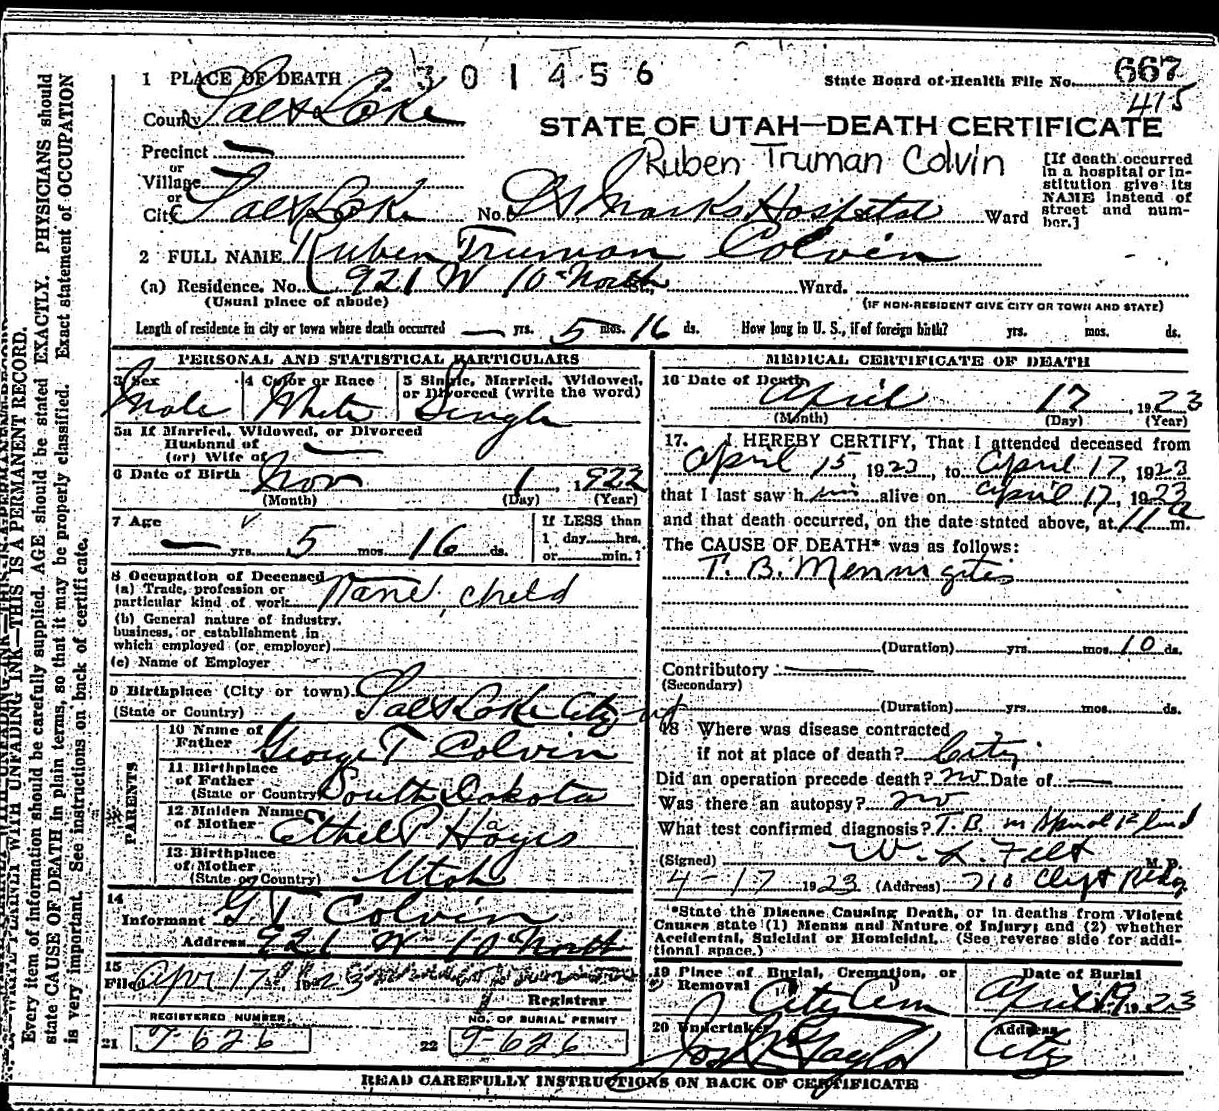 1 PLACE OF DEATH 2301456
State Board of Health File No. 667
415
County Salt Lake
STATE OF UTAH—DEATH CERTIFICATE
Precinct —
or
Village —
or
Ruben Truman Colvin
[If death occurred in a hospital or institution give its NAME instead of street and number.]
City Salt Lake No. St Marks Hospital Ward
2 FULL NAME Ruben Truman Colvin
(a) Residence. No. 921 W 10 North St., Ward.
(Usual place of abode) (IF NON-RESIDENT GIVE CITY OR TOWN AND STATE)
Length of residence in city or town where death occurred — yrs. 5 mos. 16 ds. How long in U. S., if of foreign birth? yrs. mos. ds.
PERSONAL AND STATISTICAL PARTICULARS
3 Sex Male
4 Color or Race White
5 Single, Married, Widowed, or Divorced (write the word) Single
5a If Married, Widowed, or Divorced
Husband of
(or) Wife of —
6 Date of Birth Nov 1, 1922
(Month) (Day) (Year)
7 Age — yrs. 5 mos. 16 ds.
If LESS than
1 day....hrs.
or....min.?
8 Occupation of Deceased
(a) Trade, profession or
particular kind of work child
(b) General nature of industry,
business, or establishment in
which employed (or employer)
(c) Name of Employer
9 Birthplace (City or town) Salt Lake City ut
(State or Country)
PARENTS
10 Name of
Father George T Colvin
11 Birthplace
of Father
(State or Country) South Dakota
12 Maiden Name
of Mother Ethel P Hayis
13 Birthplace
of Mother
(State or Country) Utah
14
Informant G T Colvin
Address 921 W-10 North
15
Filed Apr 17 1923
Registrar
REGISTERED NUMBER
21 T-626
NO. OF BURIAL PERMIT
22 T-626
MEDICAL CERTIFICATE OF DEATH
16 Date of Death
April 17, 1923
(Month) (Day) (Year)
17. I HEREBY CERTIFY, That I attended deceased from
April 15 1923, to April 17, 1923
that I last saw him alive on April 17, 1923
and that death occurred, on the date stated above, at 11 a m.
The CAUSE OF DEATH* was as follows:
T. B. Meningitis
(Duration) yrs. mos. 10 ds.
Contributory —
(Secondary)
(Duration) yrs. mos. ds.
18 Where was disease contracted
if not at place of death? City
Did an operation precede death? no Date of —
Was there an autopsy? no
What test confirmed diagnosis? T.B. in Spinal Fluid
(Signed) W. L. Felt M. D.
4-17 1923 (Address) 710 Clift Bldg.
*State the Disease Causing Death, or in deaths from Violent
Causes state (1) Means and Nature of Injury; and (2) whether
Accidental, Suicidal or Homicidal. (See reverse side for addi-
tional space.)
19 Place of Burial, Cremation, or
Removal City Cem
Date of Burial
April 19 1923
20 Undertaker
Address
City
READ CAREFULLY INSTRUCTIONS ON BACK OF CERTIFICATE
WRITE PLAINLY WITH UNFADING INK—THIS IS A PERMANENT RECORD.
Every item of information should be carefully supplied. AGE should be stated EXACTLY. PHYSICIANS should
state CAUSE OF DEATH in plain terms, so that it may be properly classified. Exact statement of OCCUPATION
is very important. See instructions on back of certificate.